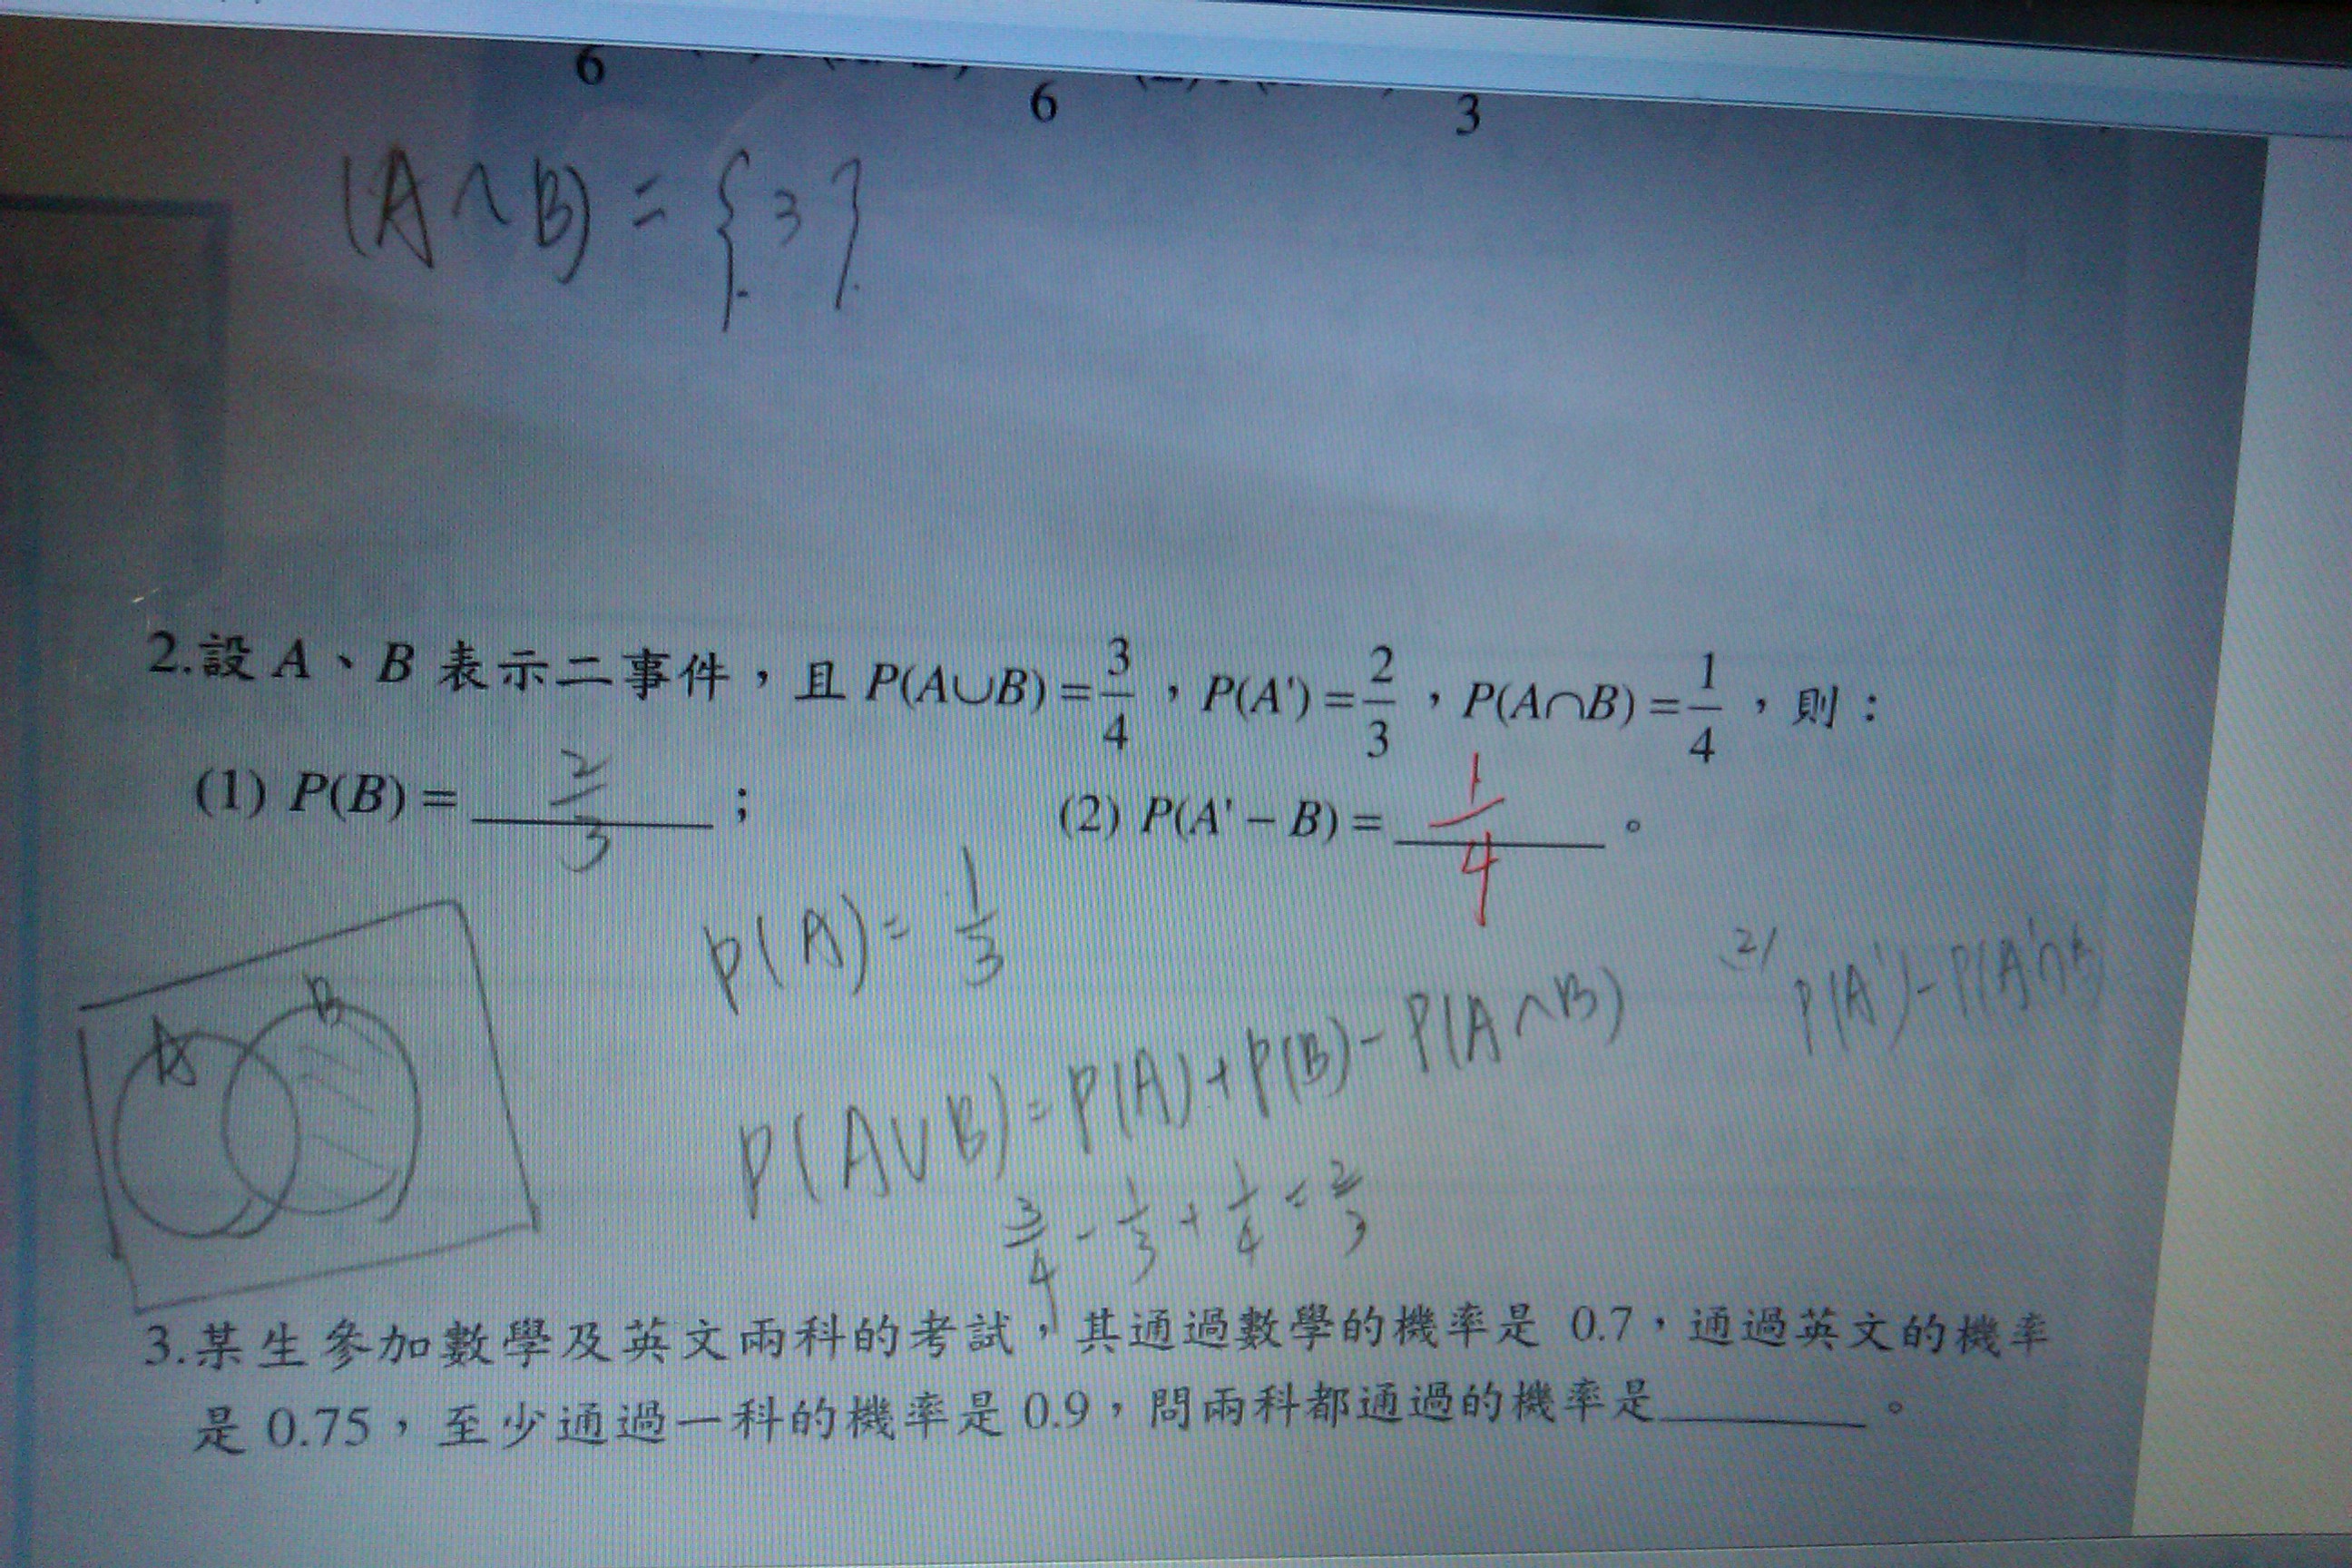 6
6
3
(A∩B) = {3}
2.設 A、B 表示二事件，且 P(A∪B) = 3/4，P(A') = 2/3，P(A∩B) = 1/4，則：
(1) P(B) = 2/3； (2) P(A' − B) = 1/4。
P(A) = 1/3
A B
P(A∪B) = P(A) + P(B) − P(A∩B)
3/4 − 1/3 + 1/4 = 2/3
(2) P(A') − P(A'∩B)
3.某生參加數學及英文兩科的考試，其通過數學的機率是 0.7，通過英文的機率
是 0.75，至少通過一科的機率是 0.9，問兩科都通過的機率是______。